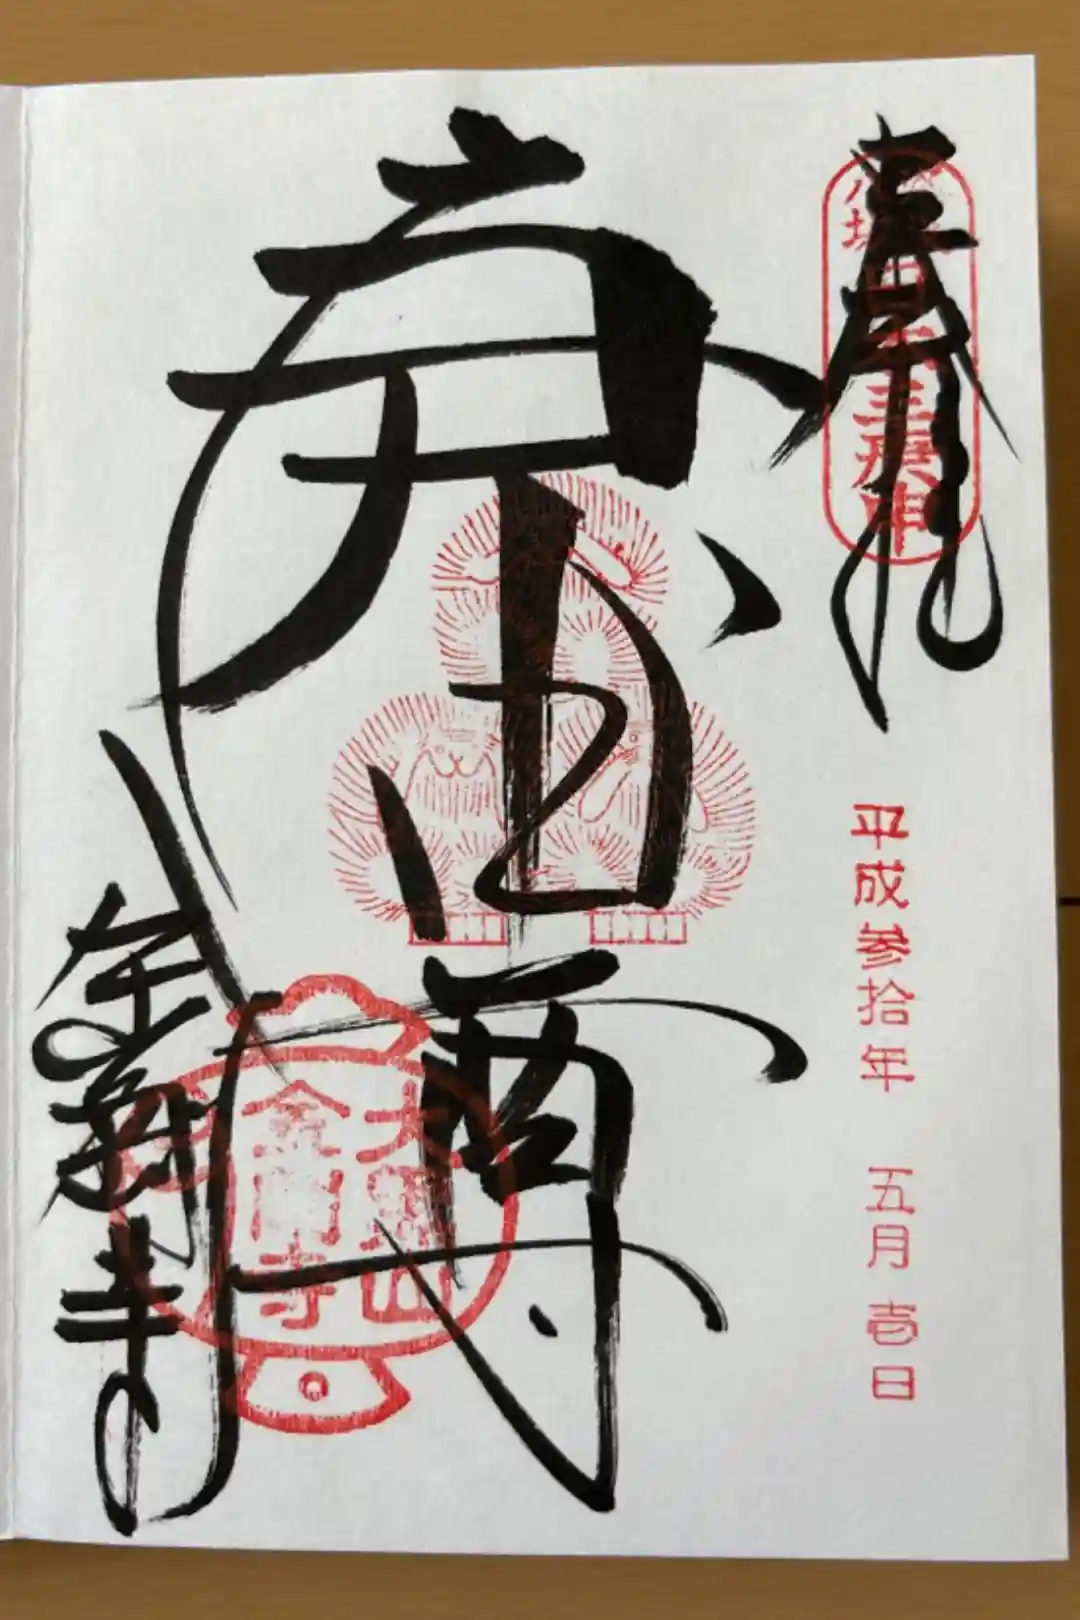 奉拝
八坂
日本三庚申
平成参拾年 五月 壱日
庚申尊
大黒山
金剛寺
金剛寺